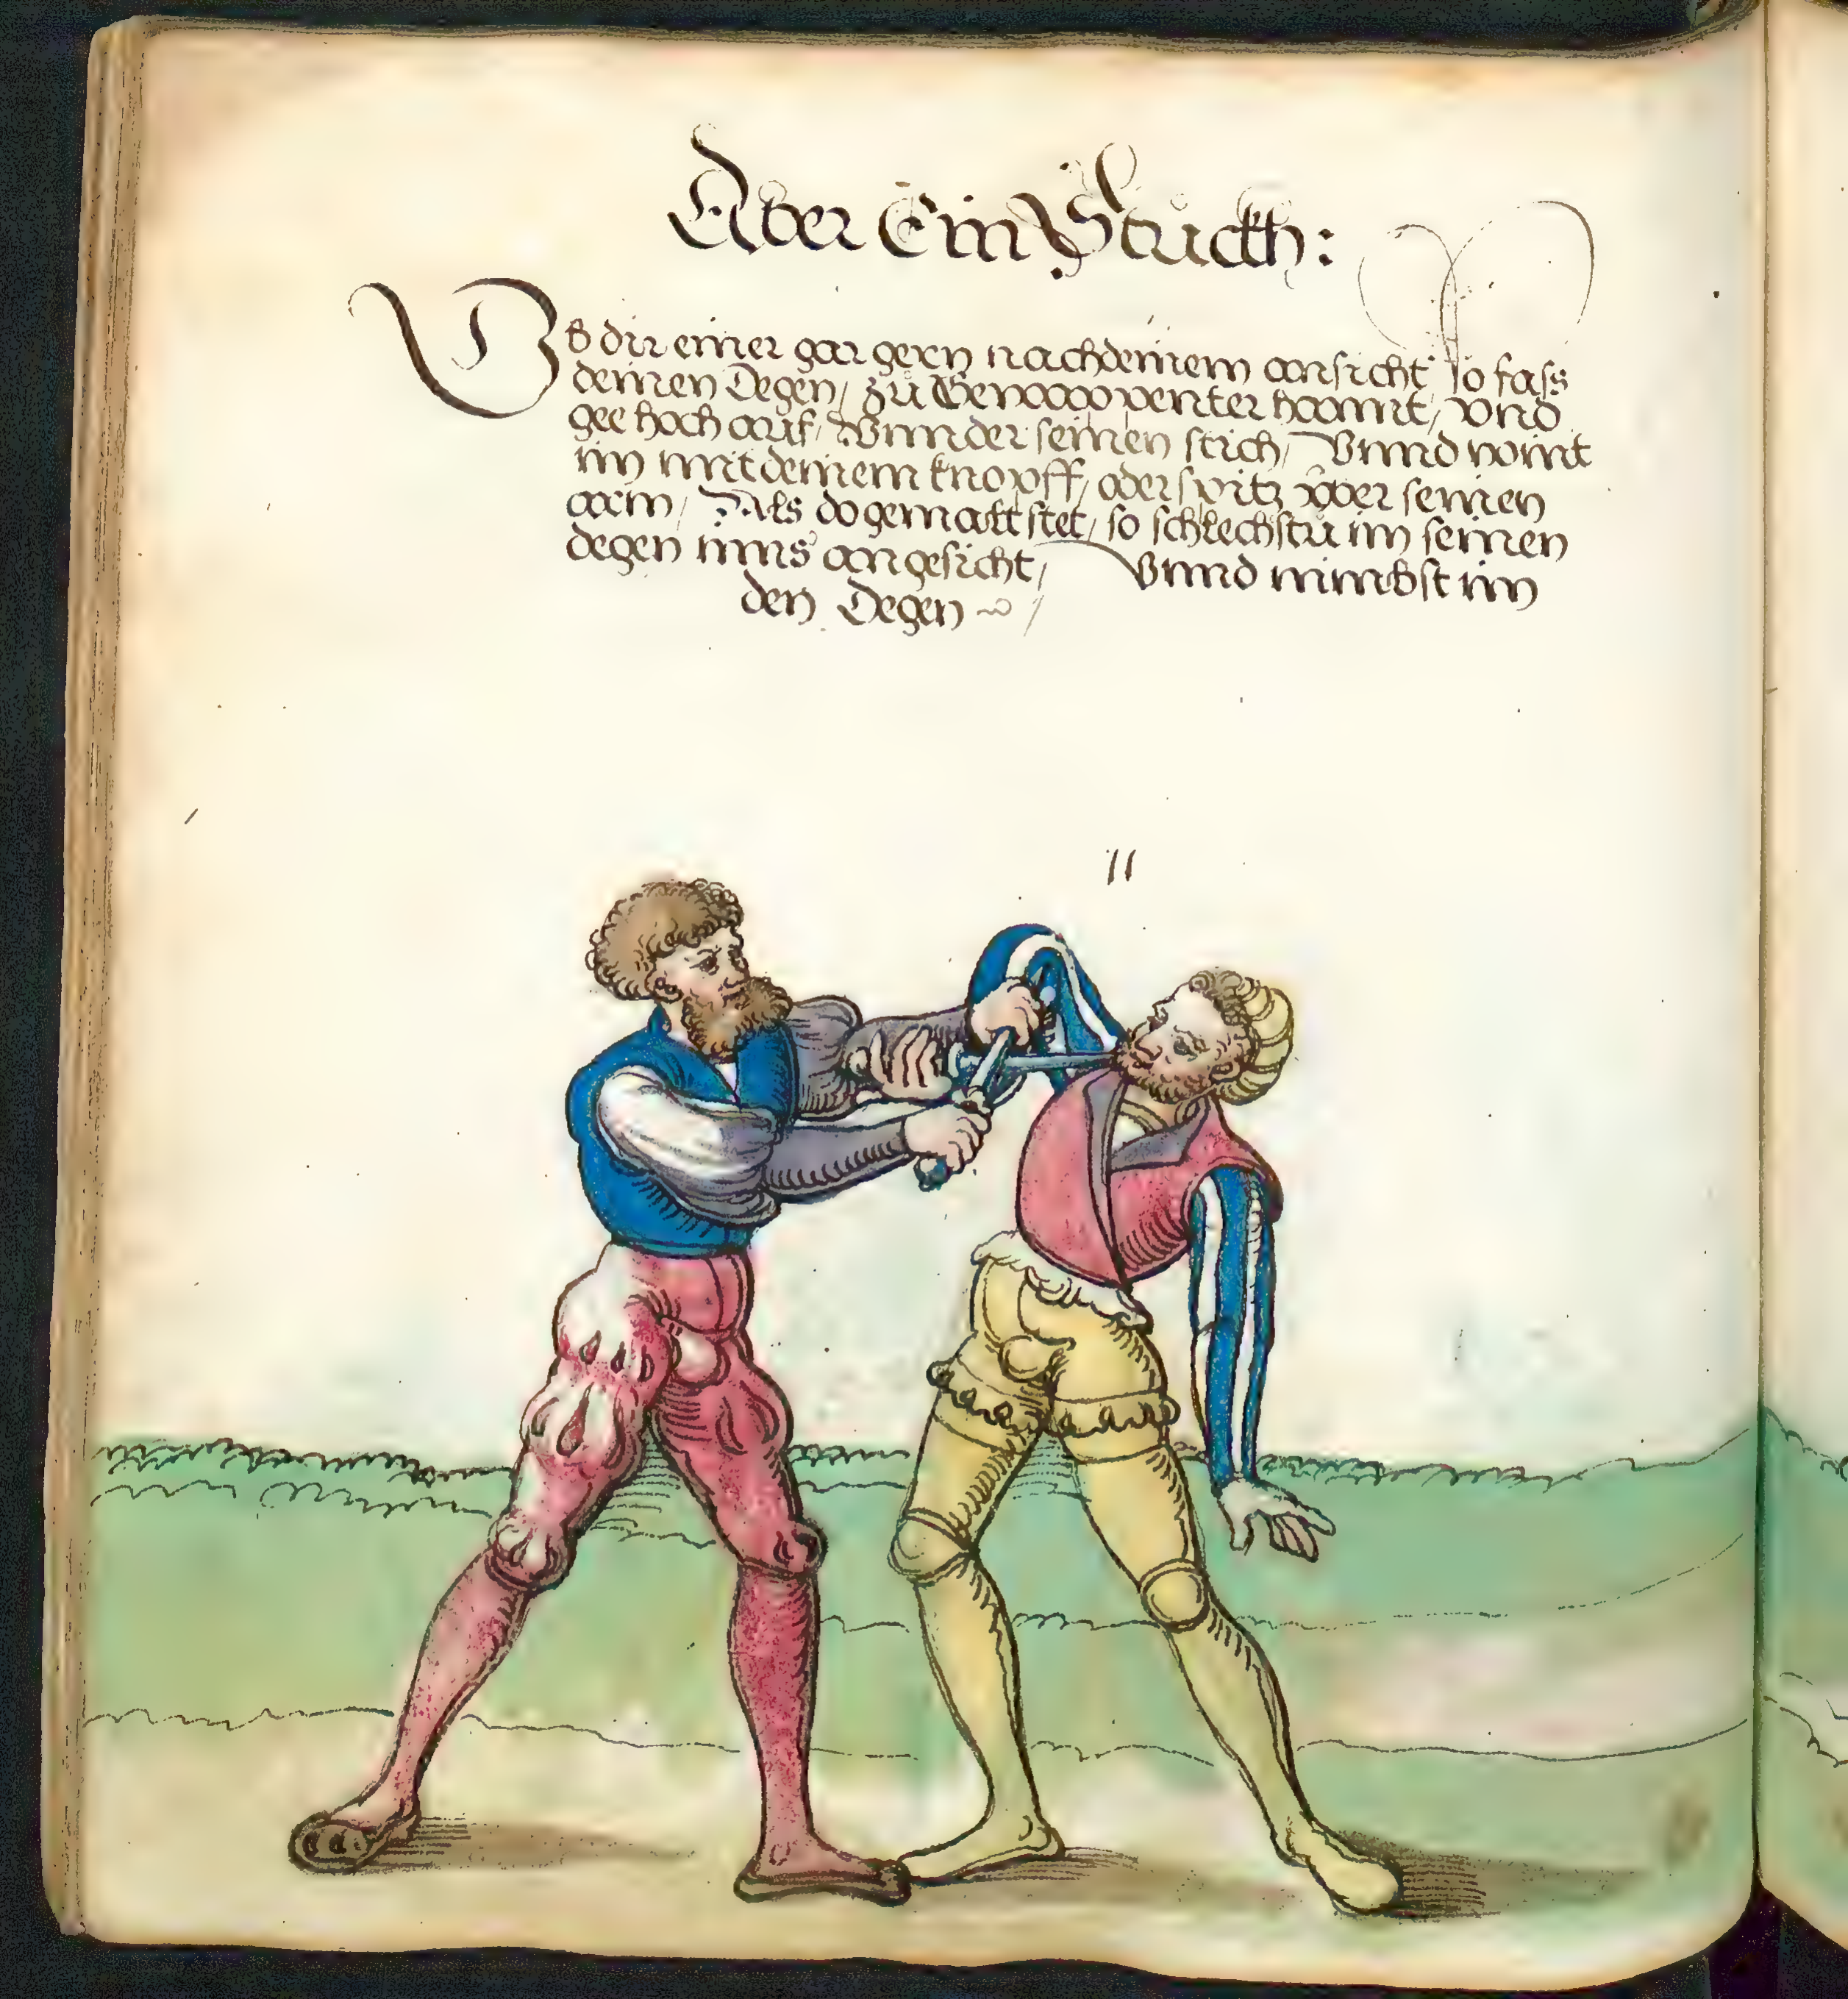 Aber Ein Stuckh:
Ob dir einer gar gern nach deinem ansicht so fass
deinen Degen, zu Gewappenter hannt, vnd
gee hoch auf, Vnnder seinen stich, Vnnd wint
im mit deinem knopff, oder spitz vber seinen
arm, Als do gemalt stet, so schlechstu im seinen
degen inns angesicht, Vnnd nimbst im
den Degen
11